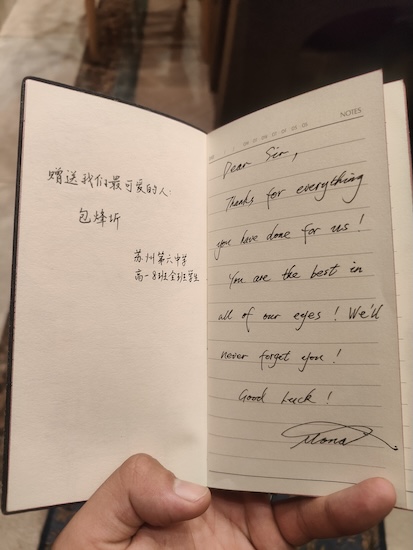 赠送我们最可爱的人:
包烽圻
苏州第六中学
高一8班全班学生
NOTES
Dear Sir,
Thanks for everything
you have done for us!
You are the best in
all of our eyes! We'll
never forget you!
Good Luck!
Mona